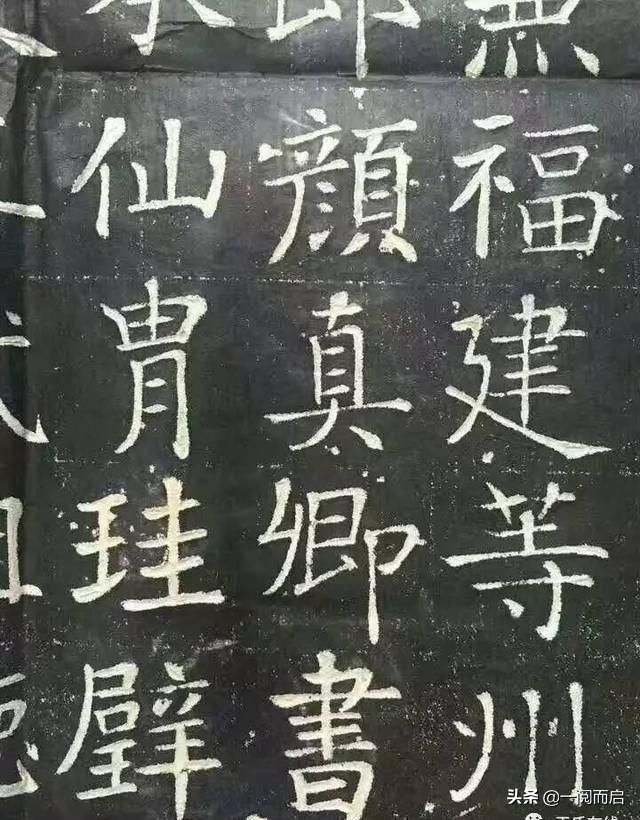 兼福建等州
郎顏真卿書
仙胄珪璧
头条 @一阅而启